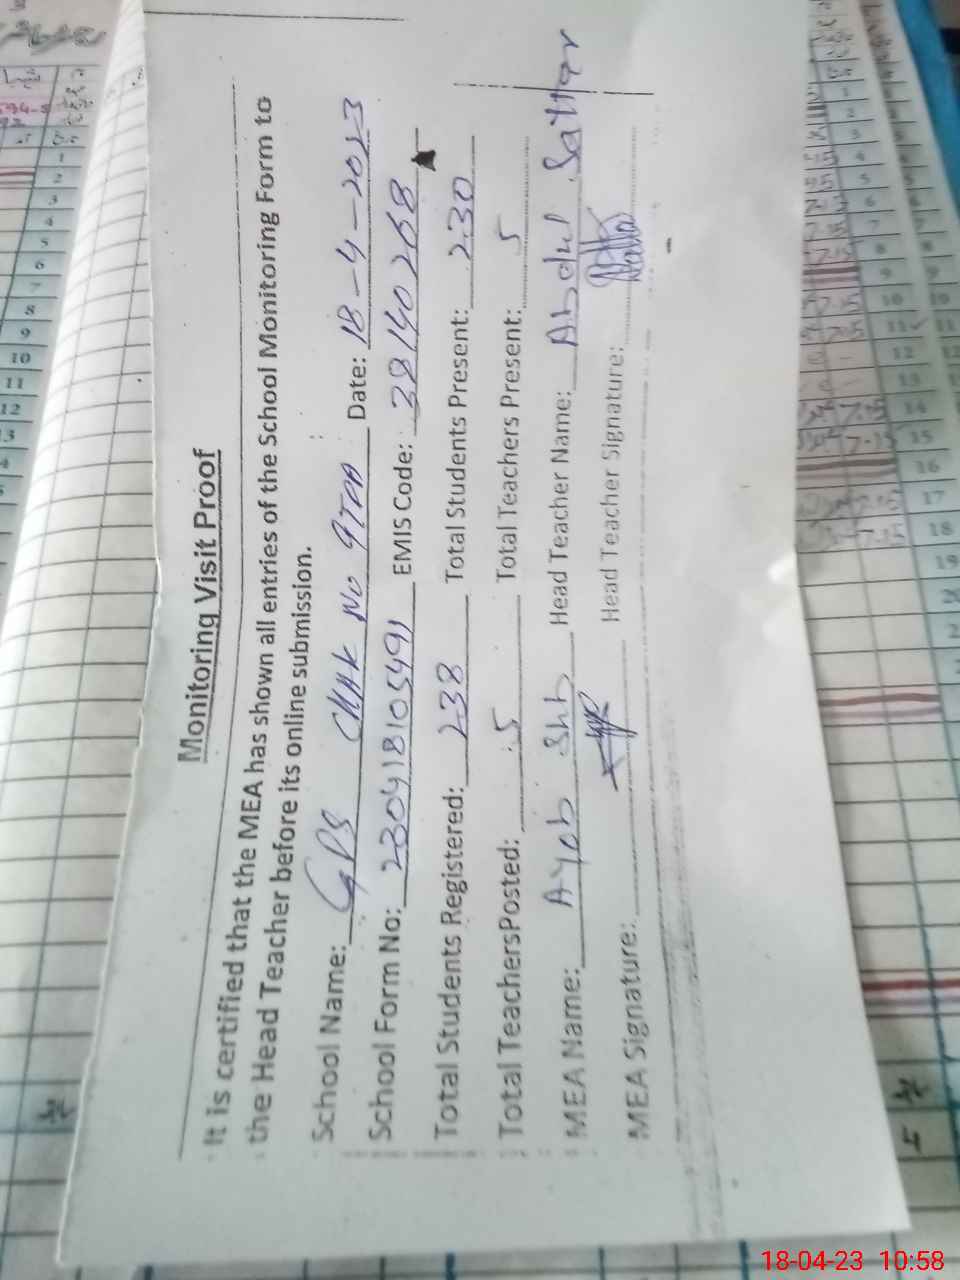 Monitoring Visit Proof
It is certified that the MEA has shown all entries of the School Monitoring Form to
the Head Teacher before its online submission.
School Name: GPS CHAK No 9TDA Date: 18-4-2023
School Form No: 230418105491 EMIS Code: 38140268
Total Students Registered: 238 Total Students Present: 230
Total TeachersPosted: 5 Total Teachers Present: 5
MEA Name: Ayob Shh Head Teacher Name: Abdul Sattar
MEA Signature: Head Teacher Signature:
18-04-23 10:58